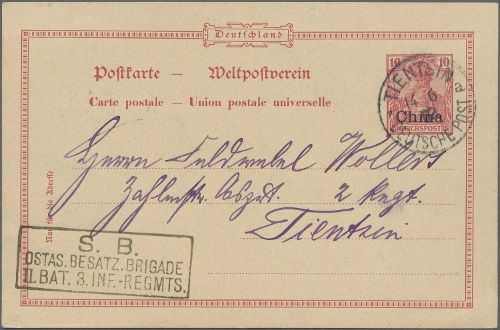 Deutschland
Postkarte — Weltpostverein
Carte postale — Union postale universelle
10 10
China
REICHSPOST
TIENTSIN
14 6
DEUTSCHE POST
Herrn Feldwebel Wollers
Zahlmstr. Aspt. 2 Regt.
Tientsin
Nur für die Adresse
S. B.
OSTAS. BESATZ. BRIGADE
II. BAT. 3. INF.-REGMTS.